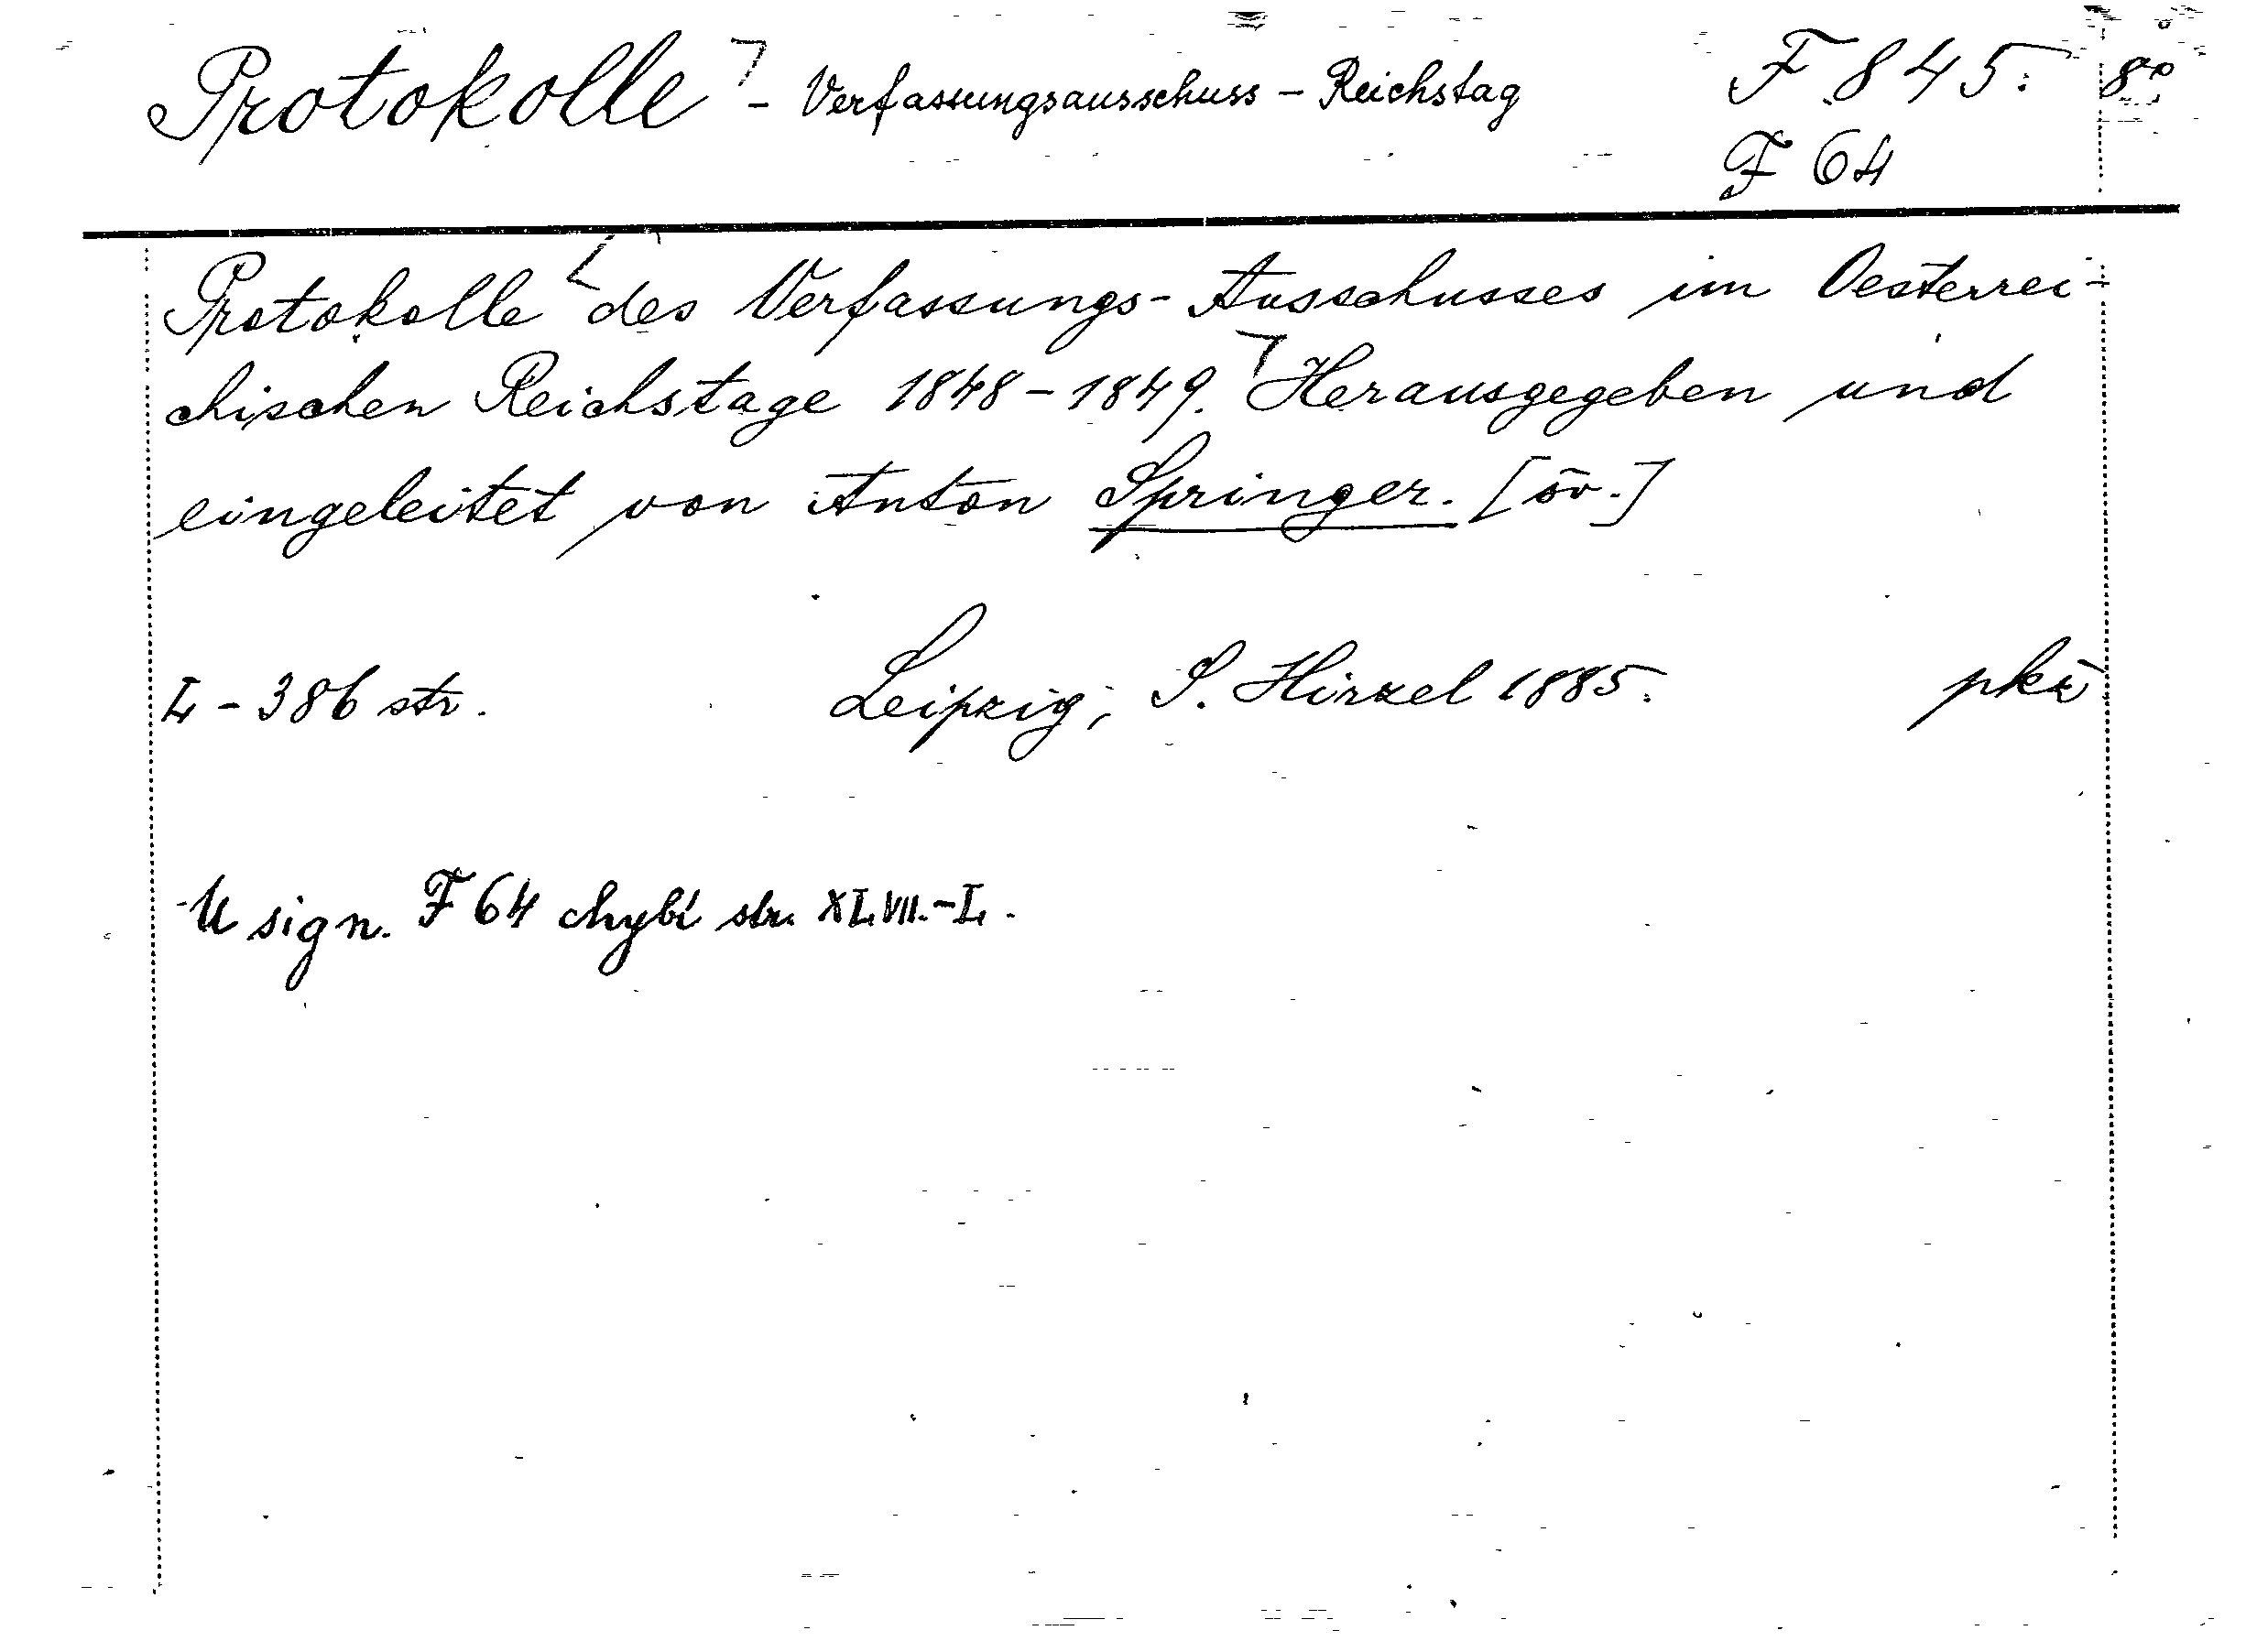 Protokolle - Verfassungsausschuss - Reichstag F 845. 8°
F 64
Protokolle des Verfassungs-Ausschusses im Oesterrei-
chischen Reichstage 1848-1849. Herausgegeben und
eingeleitet von Anton Springer. [sv.]
L - 386 str. Leipzig, S. Hirzel 1885.
U sign. F 64 chybí str. XLVII.-L.